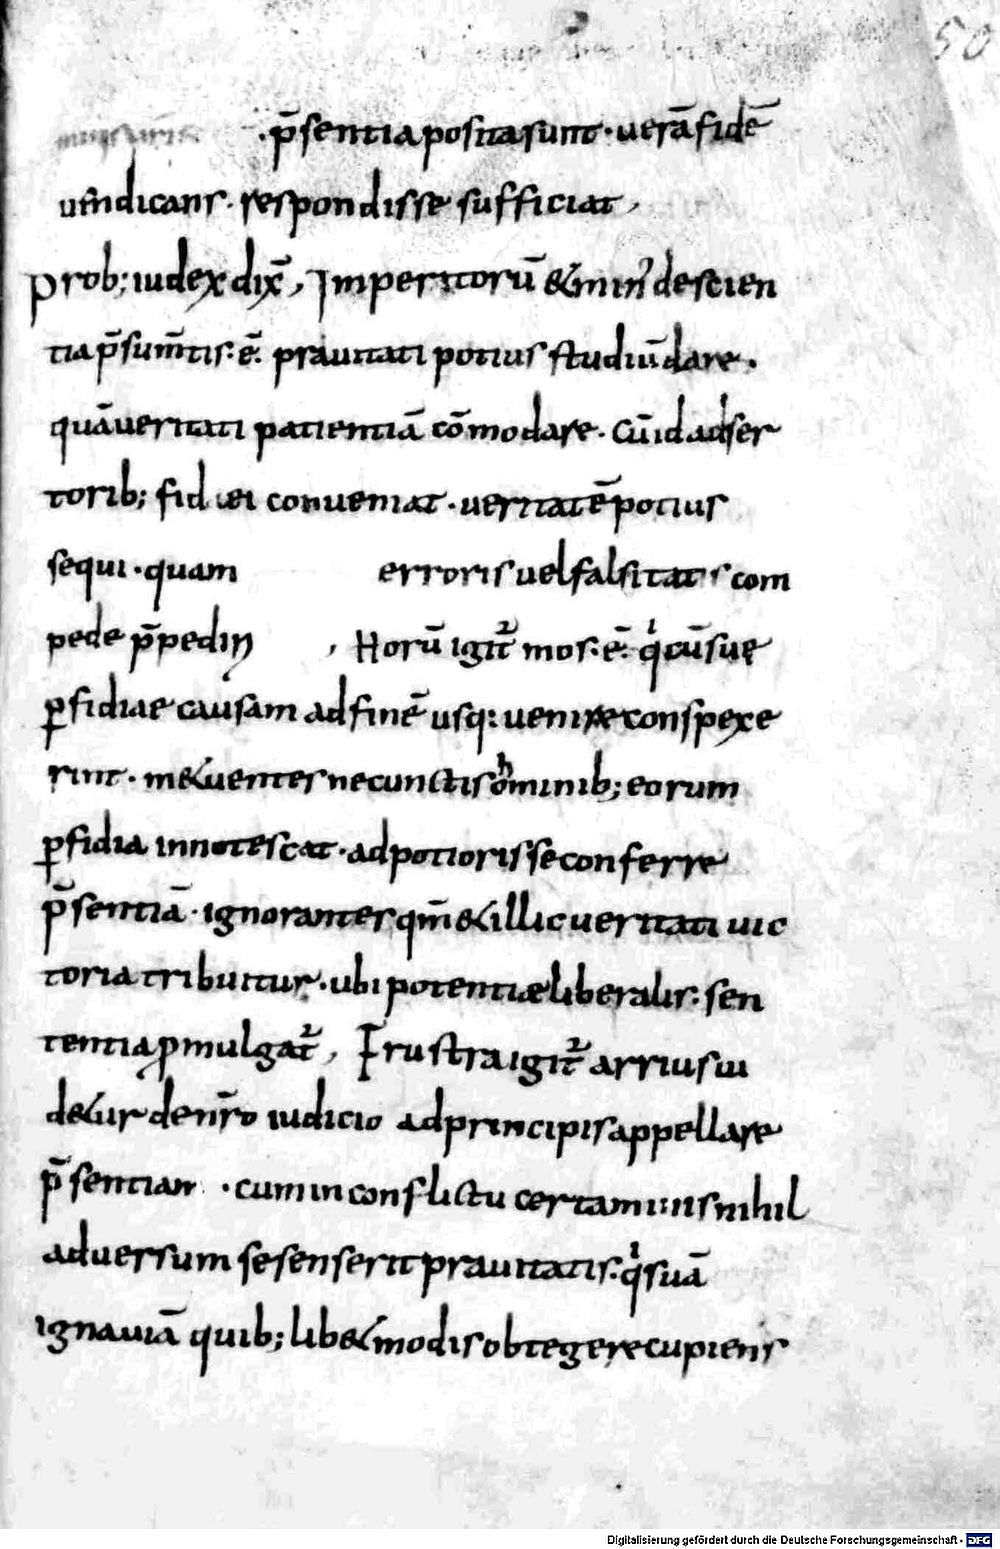 50
· p̄sentia posita sunt · uerā fidē
uindicans · respondisse sufficiat,
Prob; iudex dix̄, Imperitorū & min' de scien
tia p̄sum̄tis · ē · prauitati potius studiū dare ·
quā ueritati patientiā cōmodare · Cū id adser
torib; fidei conueniat · ueritatē potius
sequi · quam erroris uel falsitatis com
pede p̄pediri, Horū igit̄ mos · ē · qi cū suę
ꝑfidiae causam ad finē usq; uenire conspexe
rint · m&uentes ne cunctis hominib; eorum
ꝑfidia innotescat · ad potioris se conferre
p̄sentiā · ignorantes qm̄ & illic ueritati uic
toria tribuitur · ubi potentiæ liberalis · sen
tentia ꝓmulgat̄, Frustra igit̄ arrius ui
d&ur de nr̄o iudicio ad principis appellare
p̄sentiam · cum in conflictu certaminis nihil
aduersum se senserit prauitatis · qi suā
ignauiā quib; lib& modis obtegere cupiens
Digitalisierung gefördert durch die Deutsche Forschungsgemeinschaft - DFG